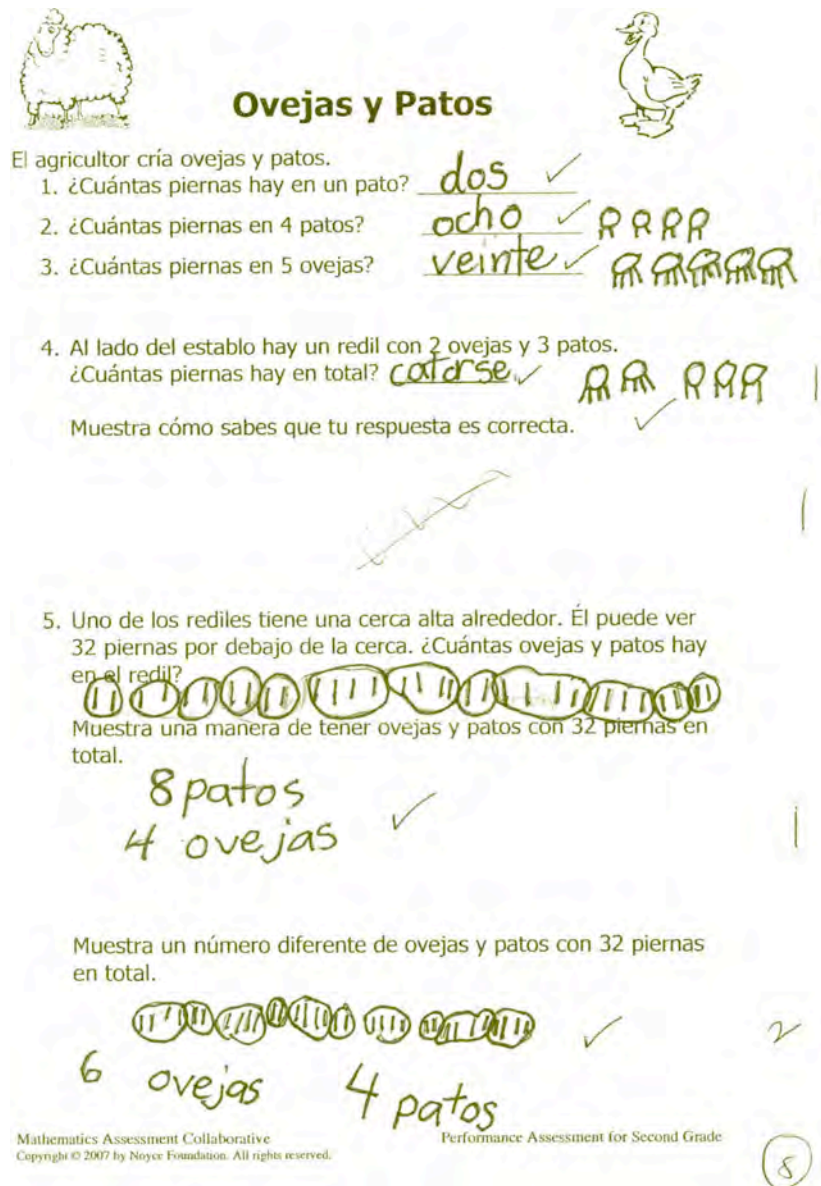 Ovejas y Patos
El agricultor cría ovejas y patos.
1. ¿Cuántas piernas hay en un pato? dos
2. ¿Cuántas piernas en 4 patos? ocho
3. ¿Cuántas piernas en 5 ovejas? veinte
4. Al lado del establo hay un redil con 2 ovejas y 3 patos.
¿Cuántas piernas hay en total? catorse
Muestra cómo sabes que tu respuesta es correcta.
5. Uno de los rediles tiene una cerca alta alrededor. Él puede ver
32 piernas por debajo de la cerca. ¿Cuántas ovejas y patos hay
en el redil?
Muestra una manera de tener ovejas y patos con 32 piernas en
total.
8 patos
4 ovejas
Muestra un número diferente de ovejas y patos con 32 piernas
en total.
2
6 ovejas 4 patos
Mathematics Assessment Collaborative Performance Assessment for Second Grade
Copyright © 2007 by Noyce Foundation. All rights reserved.
8